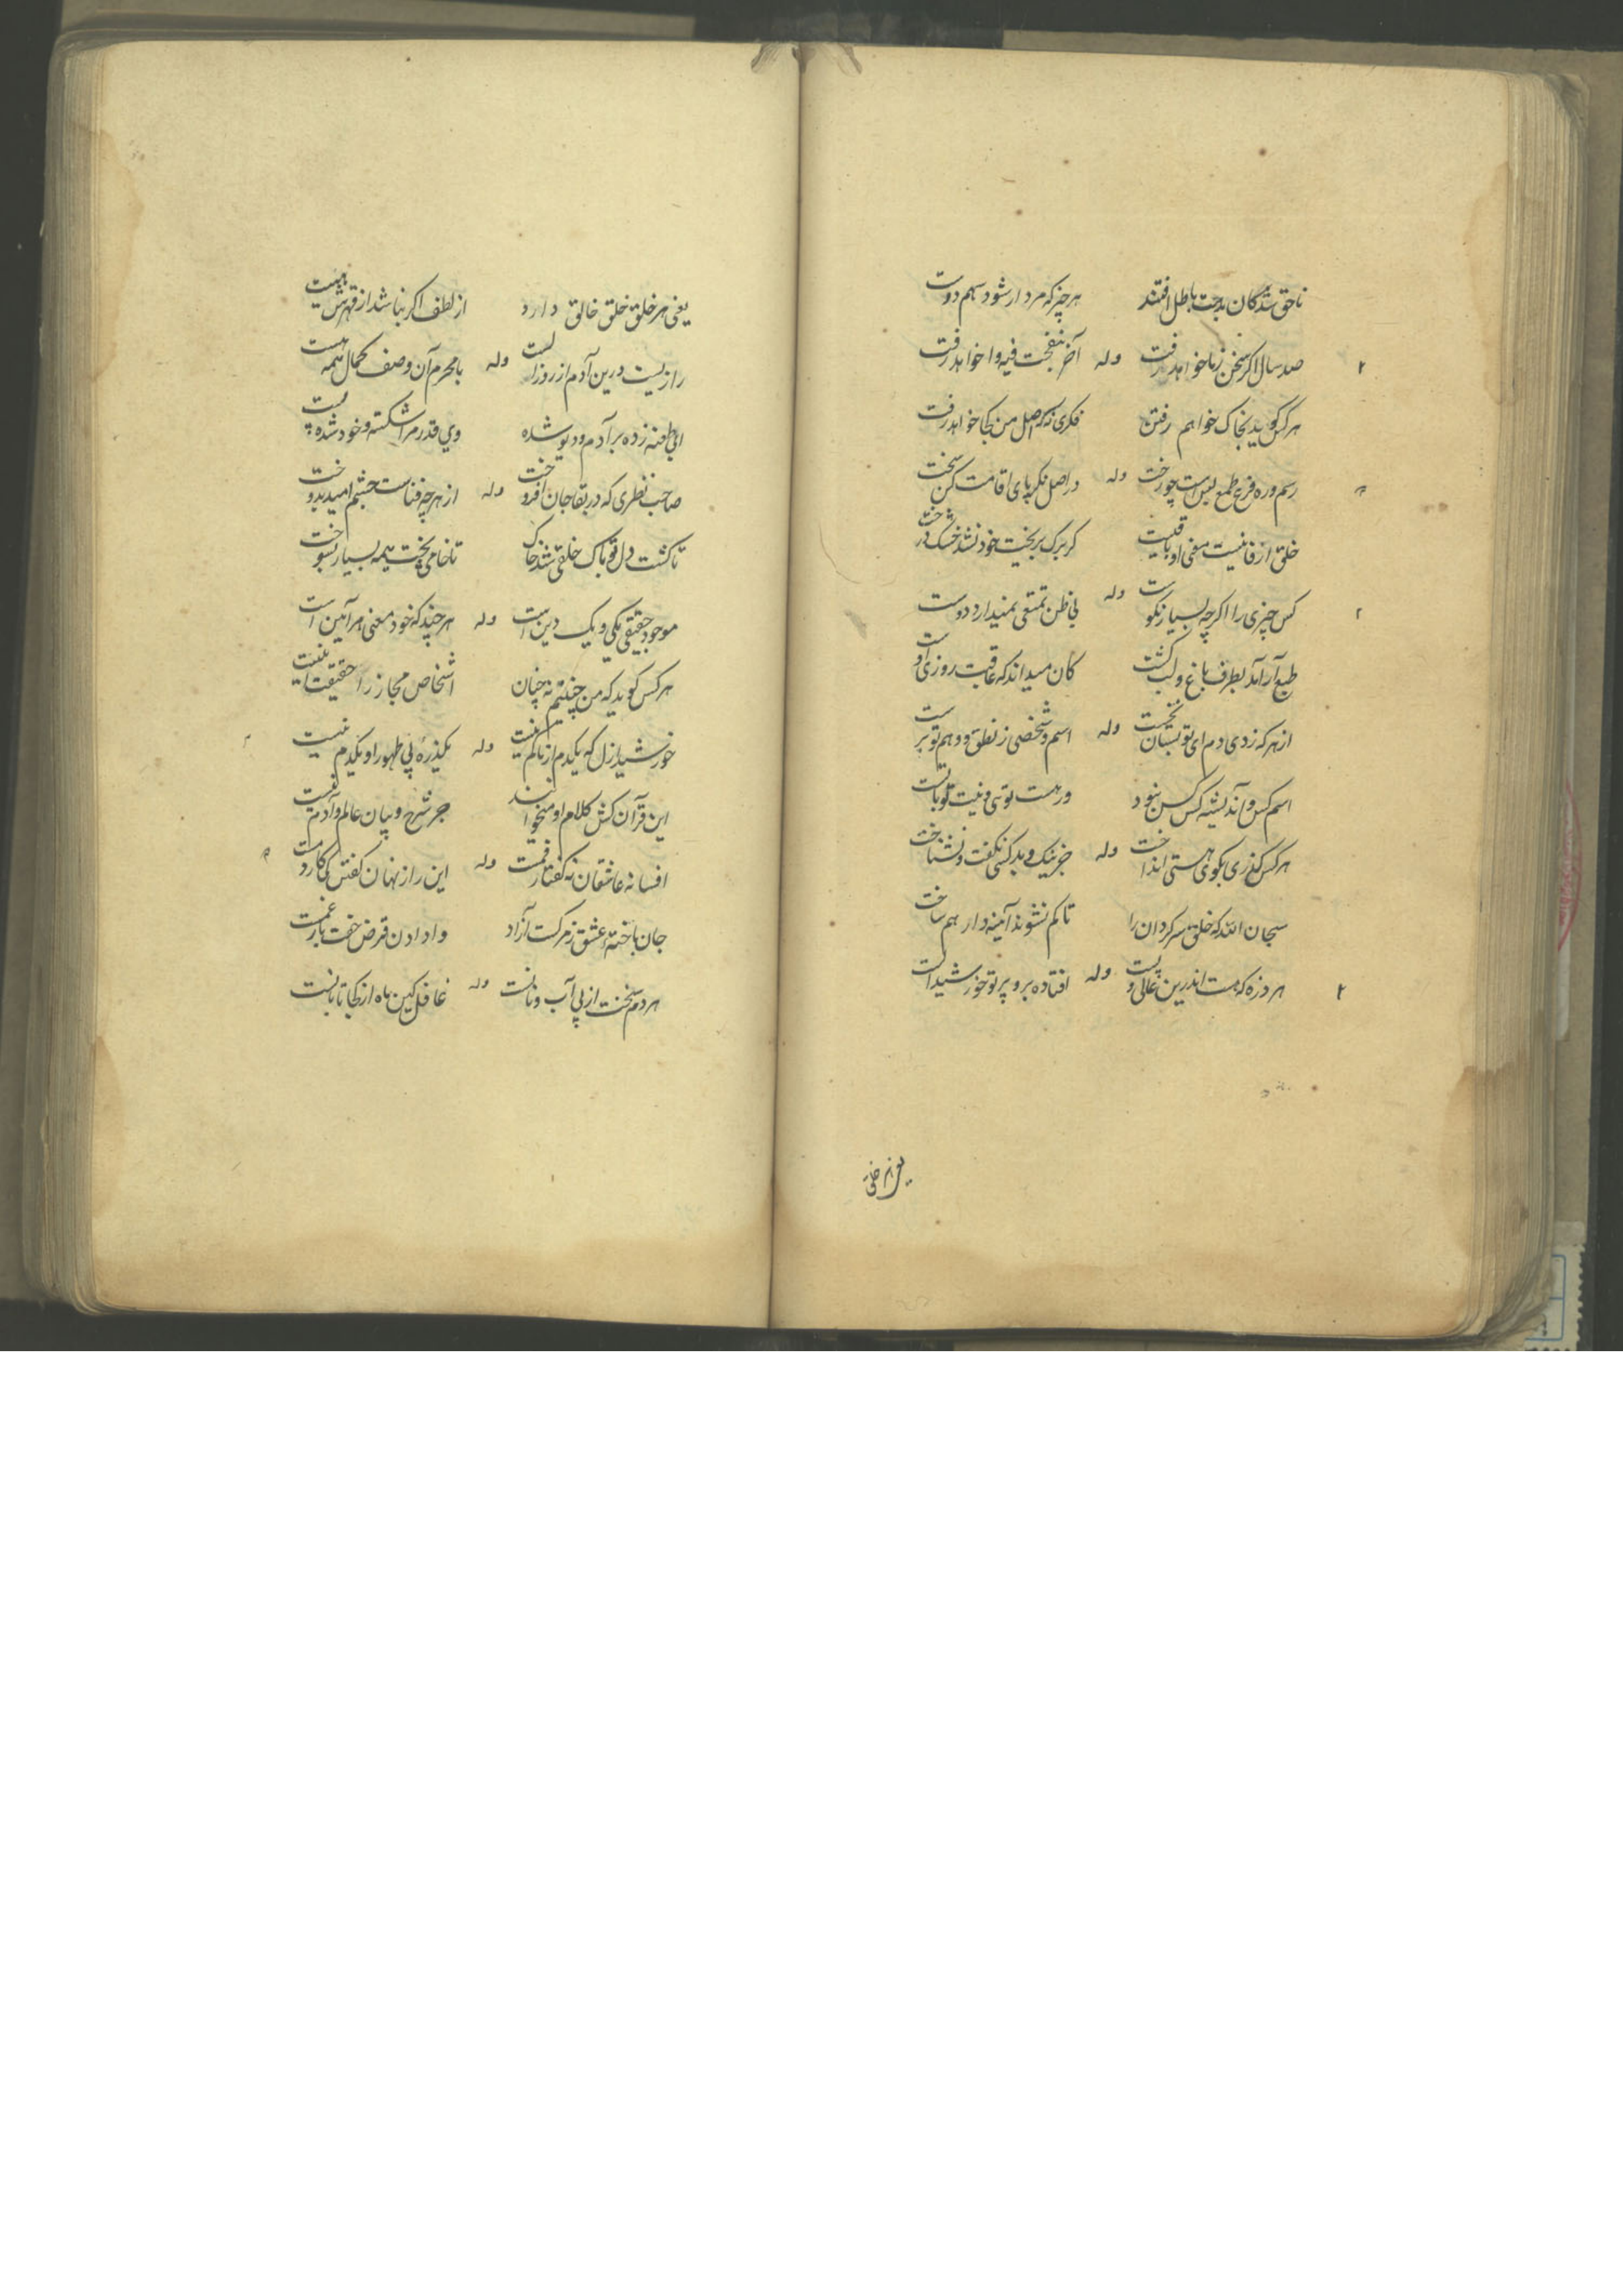 ناحق شدگان بدجت باطل افتند هر چیز که مردار شود سهم دوست
صد سال اگر سخن زما خواهد رفت وله آخر نفخت فیه وا خواهد رفت
هر کس گوید بخاک خواهم رفتن فکری نه که اصل من کجا خواهد رفت
رسم و ره فرع طمع لیس است چو رخت وله در اصل نکر پای اقامت کن سخت
خلق ار فانیست معنی او باقیست گر برگ بریخت خود نشد خشک درخت
کس چیزی را اگرچه بسیار نکوست وله بی ظن تمتعی نمیدارد دوست
طبع آرامد بطرف باغ و لب کشت کان میداند که عاقبت روزی اوست
از هر که زدی دم ای تو بستان نخست وله اسم و شخصی ز نطق و وهم تو برست
اسم کس و اندیشه کس کس نبود ور هست توئی و نیت تو با تست
هر کس گذری بکوی هستی انداخت وله جز نیک و بد کسی نگفت و نشناخت
سبحان الله که خلق سرگردان را تا گم نشوند آینه دار هم ساخت
هر ذره که هست اندرین عالی و پست وله افتاده برو پرتو خورشید الست
یعنی هر خلق
یعنی هر خلق خلق خالق دارد از لطف اگر نباشد از قهرش هست
رازیست درین آدم از روز الست وله با محرم آن وصف کمال همه هست
ای طعنه زده بر آدم و دیو شده وی قدر مرا شکسته و خود شده پست
صاحب نظری که در بقا جان افروخت وله از هر چه فناست چشم امید بدوخت
تا گشت دل تو پاک خلقی شد خاک تا خامی پخت نیمه بسیار بسوخت
موجود حقیقی یکی و یک دین است وله هر چند که خود معنی هر آئین است
هر کس گوید که من چنینم نه چنان اشخاص مجاز را حقیقت اینست
خورشید ازل که یکدم از ما گم نیست وله یکذره بی ظهور او یکدم نیست
این قرآن کش کلام او میخوانند جز شرح و بیان عالم و آدم نیست
افسانه عاشقان نه گفتار فمست وله این راز نهان گفتن کی کار دمست
جان باختهٔ عشق ز مرگست آزاد وا دادن قرض خفت بار غمست
هر دم سخنت از پی آب و نانست وله غافل کین ماه از کجا تابانست